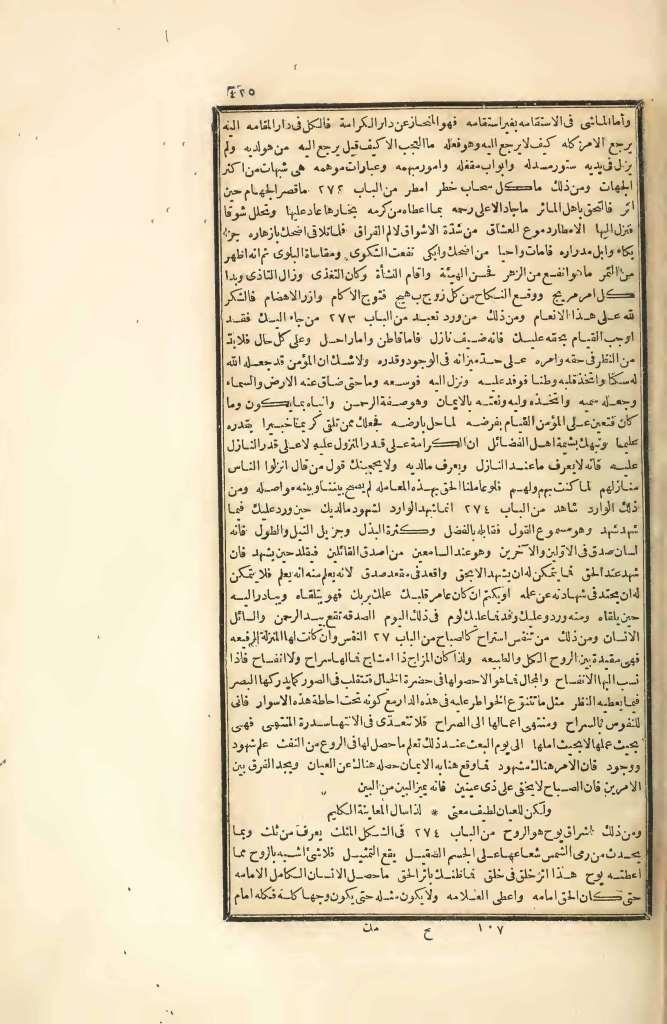 ٤٢٥
وأما الماشى فى الاستقامه بغير استقامه فهو المنحاز عن دار الكرامة فالكل فى دار المقامه اليه
يرجع الامر كله كيف لا يرجع اليه وهو فعله ما العجب الا كيف قيل يرجع اليه من هو لديه ولم
يزل فى يديه ستور مسدله وابواب مقفله وامور مبهمه وعبارات موهمه هى شبهات من اكثر
الجهات ومن ذلك ماكل سحاب خطر امطر من الباب ٢٧٢ ماقصر الجهام حين
اثر فالتحق باهل المآثر ماجاد الاعلى رحمه بما اعطاه من كرمه بخارها عاد عليها وتحلل شوقا
فنزل اليها الامطار دموع العشاق من شدّة الاشواق لالم الفراق فلما تلاقى اضحك بازهاره جزاء
بكاء وابل مدراره فامات واحيا من اضحك وابكى نفعت الشكوى ومقاساة البلوى ثم انه اظهر
من الثمر ما هو انفع من الزهر فحسن الهيئة واقام النشأة وكان التغذى وزال التاذى وبدا
كل امر مريج ووقع النكاح من كل زوج بهيج فتوج الآكام وازر الاهضام فالشكر
لله على هذا الانعام ومن ذلك من ورد تعبد من الباب ٢٧٣ من جاء اليك فقد
اوجب القيام بحقه عليك فانه ضيف نازل فاما قاطن واما راحل وعلى كل حال فلا بدّ
من النظر فى حقه وامره على حدّ ميزانه فى الوجود وقدره ولاشك ان المؤمن قد جعله الله
له سكنا واتخذ قلبه وطنا فوفد عليه ونزل اليه فوسعه وما حتى ضاق عنه الارض والسماء
وجعله سميه واتخذه وليه ونعته بالايمان وهو صفة الرحمن وانباه بما يكون وما
كان فتعين على المؤمن القيام بفرضه لما حل بارضه فجعلك ممن تلقى كريمتا خبيرا بقدره
عليما وتنبهك بشيمة اهل الفضائل ان الكرامة على قدر المنزول عليه لاعلى قدر النازل
عليه فانه لايعرف ما عند النازل ويعرف ما لديه ولا يحجبنك قول من قال انزلوا الناس
منازلهم لما كنت بهم ولهم فلو عاملنا الحق بهذه المعامله لم يصح بيننا وبينه مواصله ومن
ذلك الوارد شاهد من الباب ٢٧٤ انما شهد الوارد لشهود ما لديك حين ورد عليك فيما
شهد شهد وهو مسموع القول فقابله بالفضل وكثرة البذل وجزيل النيل والطول فانه
لسان صدق فى الاولين والآخرين وهو عند السامعين من اصدق القائلين فيقلد حين يشهد فان
شهد عند الحق فما يتمكن له ان يشهد الابحق واقعد فى مقعد صدق لانه يعلم منه انه يعلم فلا يتمكن
له ان يحيد فى شهادته عن علمه او يكتم ان كان عامر قلبك علمك بربك فهو يتلقاه ويبادر اليه
حين يلقاه ومنه ورد وعليك وفد فما عليك لوم فى ذلك اليوم الصدقه تقع بيد الرحمن والسائل
الانسان ومن ذلك من تنفس استراح كالصباح من الباب ٢٧ النفس وان كانت لها المنزلة الرفيعه
فهى مقيدة بين الروح الكل والطبيعه ولذا كان المزاج ذا امشاج فما لها سراح ولا انفساح فاذا
نسب اليها الانفساح والمجال فما هو الاحصولها فى حضرة الخيال فتتقلب فى الصور كما يدركها البصر
فيما يعطيه النظر مثل ما تتنوع الخواطر عليه فى هذه الدار مع كونه تحت احاطة هذه الاسوار فانى
للنفوس بالسراح ومنتهى اعمالها الى الصراح فلا تتعدّى فى الانتها سدرة المنتهى فهى
بحيث عملها لابحيث املها الى يوم البعث عند ذلك تعلم ما حصل لها فى الروع من النفث علم شهود
ووجود فان الامر هنالك مشهود فما وقع هنا به الايمان حصله هنالك عن العيان ويجد الفرق بين
الامرين فان الصباح لايخفى على ذى عينين فانه يميز البين من البين
ولكن للعيان لطيف معنى * لذا سال المعاينة الكليم
ومن ذلك اشراق يوح هو الروح من الباب ٢٧٤ فى الشكل المثلث يعرف من ثلث وبما
يحدث من رمى الشمس شعاعها على الجسم الصقيل يقع التمثيل فلا شئ اشبه بالروح مما
اعطته يوح هذا اثر خلق فى خلق فما ظنك باثر الحق ما حصل الانسان الكامل الامامه
حتى كان الحق امامه واعطى العلامه ولا يكون مثله حتى يكون وجها كله فكله امام
١٠٧ ح مك